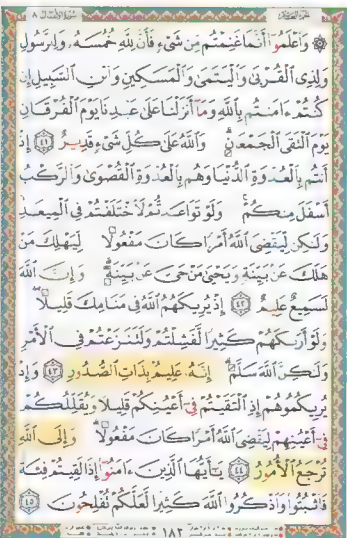 سُورَةُ الأَنفَالِ ٨
۞ وَٱعْلَمُوٓا۟ أَنَّمَا غَنِمْتُم مِّن شَىْءٍ فَأَنَّ لِلَّهِ خُمُسَهُۥ وَلِلرَّسُولِ
وَلِذِى ٱلْقُرْبَىٰ وَٱلْيَتَٰمَىٰ وَٱلْمَسَٰكِينِ وَٱبْنِ ٱلسَّبِيلِ إِن
كُنتُمْ ءَامَنتُم بِٱللَّهِ وَمَآ أَنزَلْنَا عَلَىٰ عَبْدِنَا يَوْمَ ٱلْفُرْقَانِ
يَوْمَ ٱلْتَقَى ٱلْجَمْعَانِ ۗ وَٱللَّهُ عَلَىٰ كُلِّ شَىْءٍ قَدِيرٌ ٤١ إِذْ
أَنتُم بِٱلْعُدْوَةِ ٱلدُّنْيَا وَهُم بِٱلْعُدْوَةِ ٱلْقُصْوَىٰ وَٱلرَّكْبُ
أَسْفَلَ مِنكُمْ ۚ وَلَوْ تَوَاعَدتُّمْ لَٱخْتَلَفْتُمْ فِى ٱلْمِيعَٰدِ ۙ
وَلَٰكِن لِّيَقْضِىَ ٱللَّهُ أَمْرًا كَانَ مَفْعُولًا لِّيَهْلِكَ مَنْ
هَلَكَ عَنۢ بَيِّنَةٍ وَيَحْيَىٰ مَنْ حَىَّ عَنۢ بَيِّنَةٍ ۗ وَإِنَّ ٱللَّهَ
لَسَمِيعٌ عَلِيمٌ ٤٢ إِذْ يُرِيكَهُمُ ٱللَّهُ فِى مَنَامِكَ قَلِيلًا ۖ
وَلَوْ أَرَىٰكَهُمْ كَثِيرًا لَّفَشِلْتُمْ وَلَتَنَٰزَعْتُمْ فِى ٱلْأَمْرِ
وَلَٰكِنَّ ٱللَّهَ سَلَّمَ ۗ إِنَّهُۥ عَلِيمٌۢ بِذَاتِ ٱلصُّدُورِ ٤٣ وَإِذْ
يُرِيكُمُوهُمْ إِذِ ٱلْتَقَيْتُمْ فِىٓ أَعْيُنِكُمْ قَلِيلًا وَيُقَلِّلُكُمْ
فِىٓ أَعْيُنِهِمْ لِيَقْضِىَ ٱللَّهُ أَمْرًا كَانَ مَفْعُولًا ۗ وَإِلَى ٱللَّهِ
تُرْجَعُ ٱلْأُمُورُ ٤٤ يَٰٓأَيُّهَا ٱلَّذِينَ ءَامَنُوٓا۟ إِذَا لَقِيتُمْ فِئَةً
فَٱثْبُتُوا۟ وَٱذْكُرُوا۟ ٱللَّهَ كَثِيرًا لَّعَلَّكُمْ تُفْلِحُونَ ٤٥
١٨٢